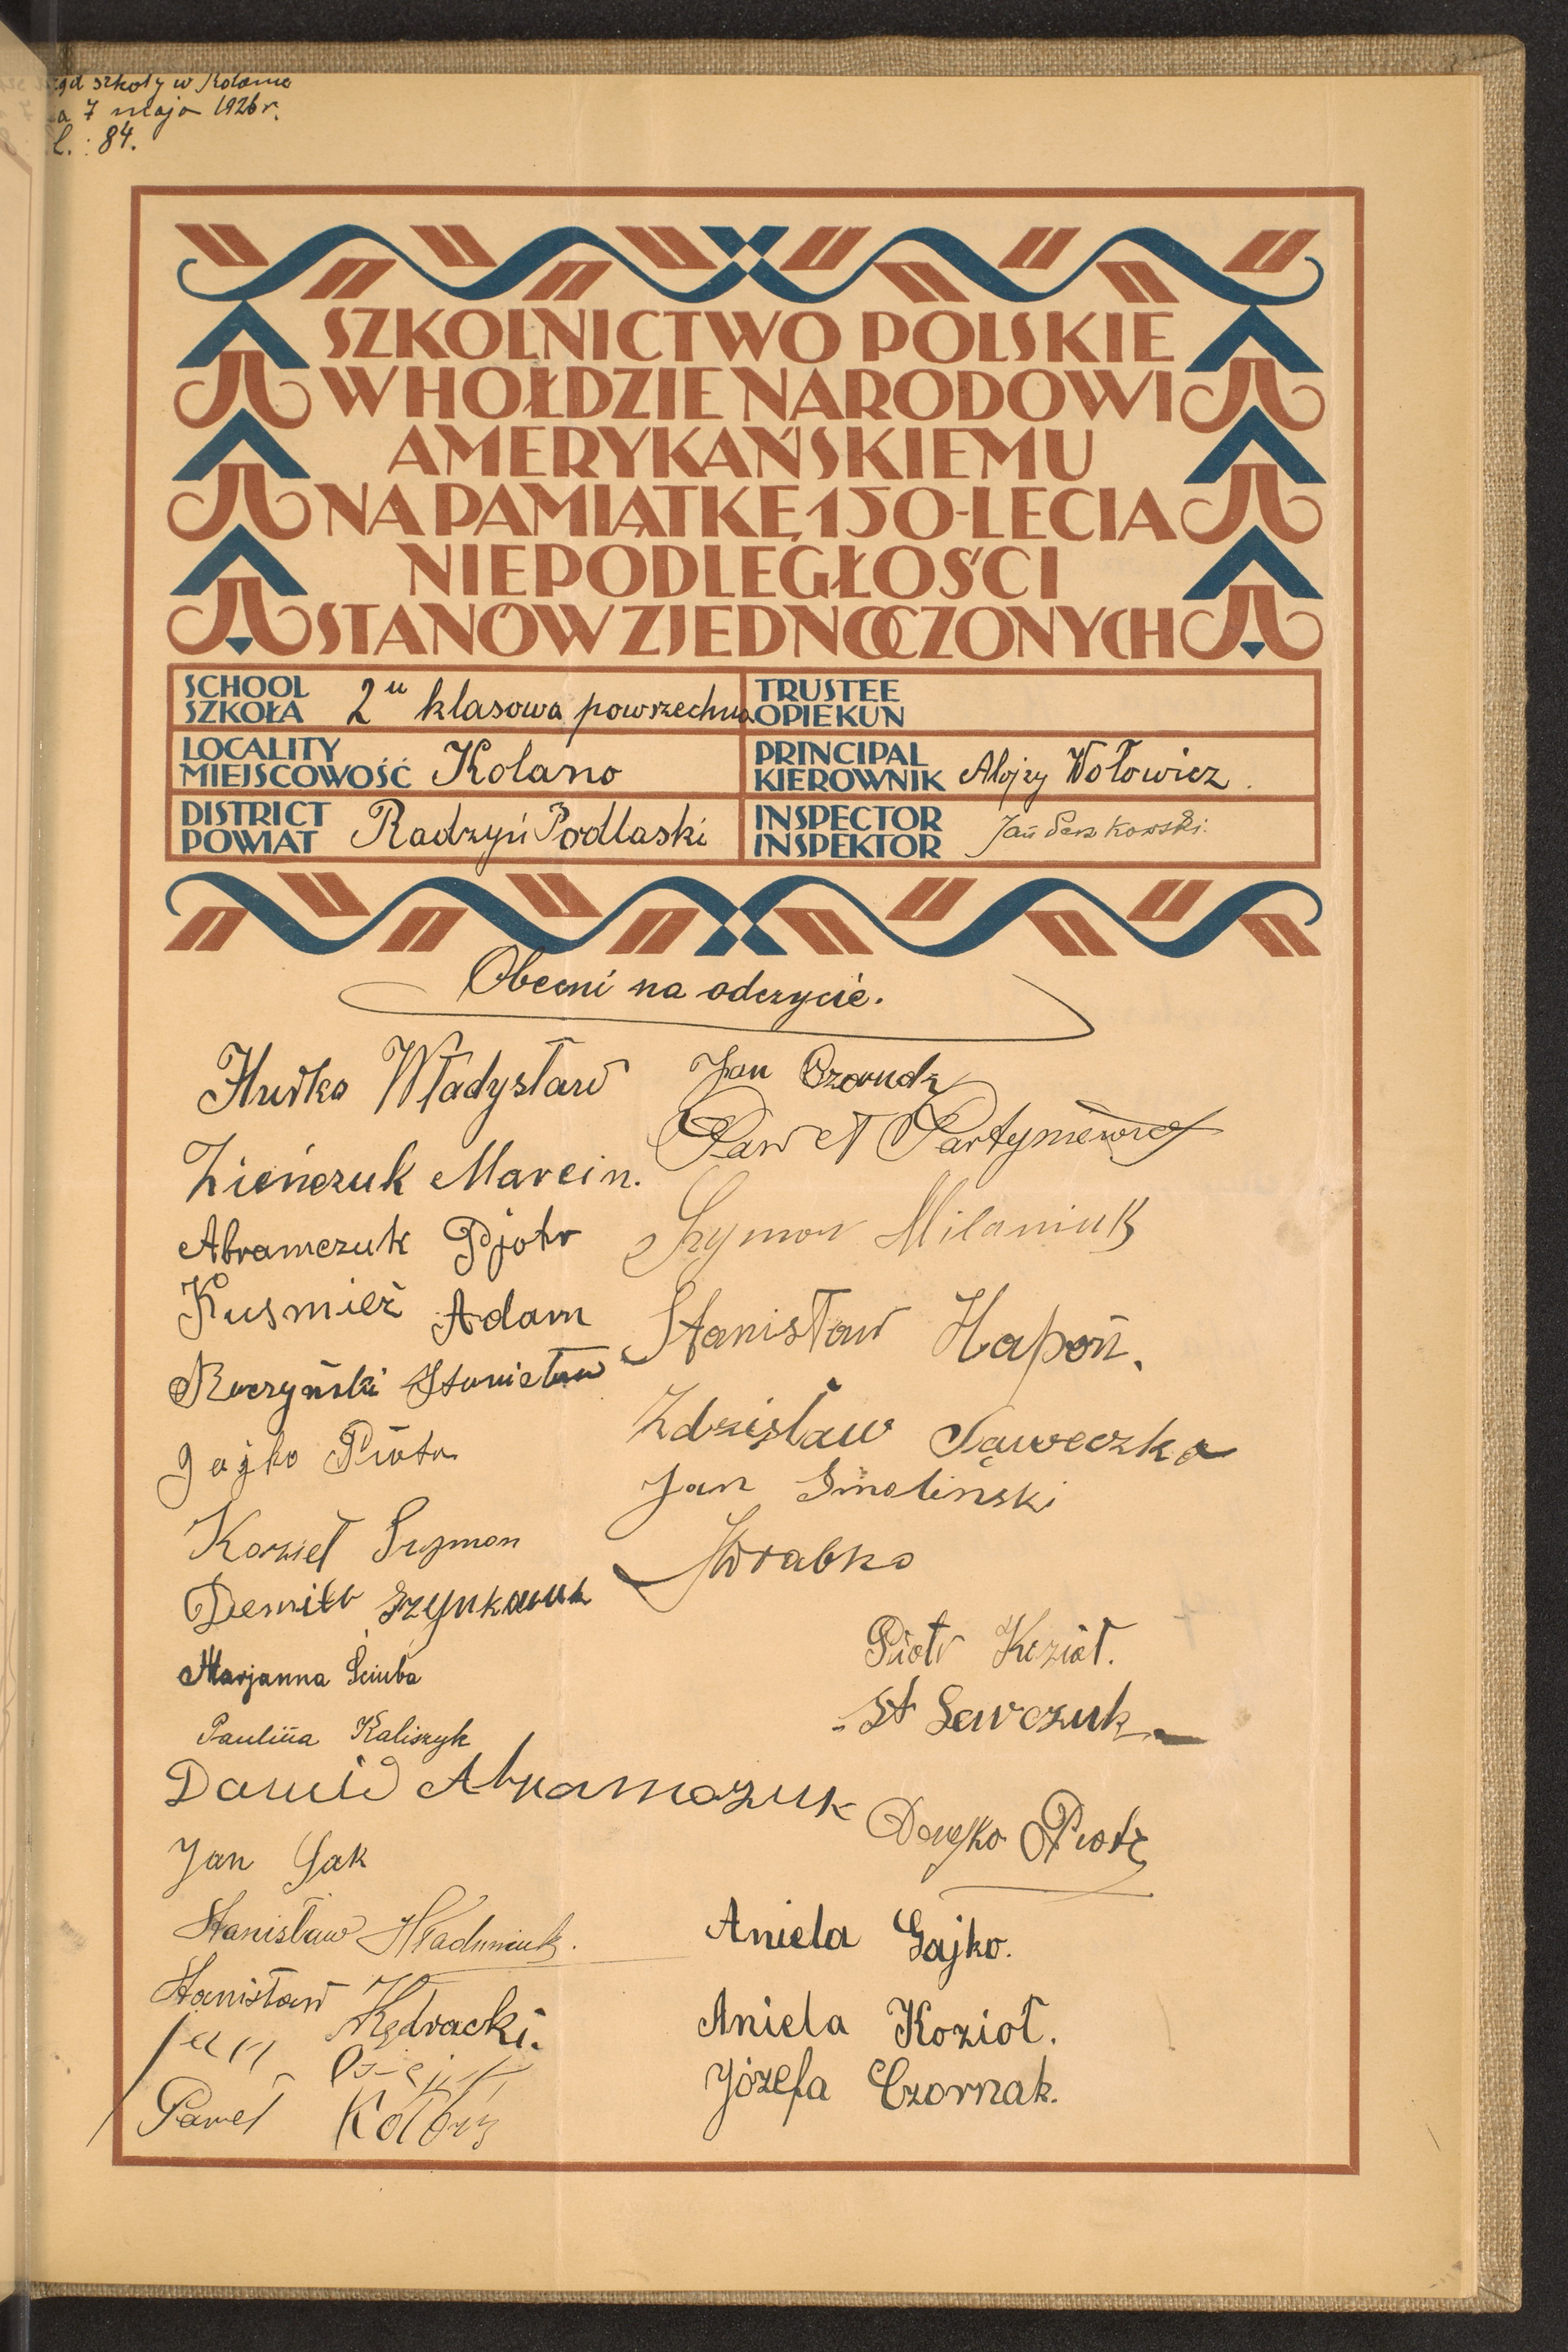 szkoły w Kolanie
7 maja 1926 r.
L. : 84.
SZKOLNICTWO POLSKIE
W HOŁDZIE NARODOWI
AMERYKAŃSKIEMU
NA PAMIĄTKĘ 150-LECIA
NIEPODLEGŁOŚCI
STANÓW ZJEDNOCZONYCH
SCHOOL
SZKOŁA 2u klasowa powszechna
TRUSTEE
OPIEKUN
LOCALITY
MIEJSCOWOŚĆ Kolano
PRINCIPAL
KIEROWNIK Alojzy Wołowicz.
DISTRICT
POWIAT Radzyń Podlaski
INSPECTOR
INSPEKTOR Jan
Obecni na odczycie.
Hurko Władysław
Zieńczuk Marcin.
Abramczuk Pjotr
Kusmież Adam
Stanisław
Gajko Piotr
Korziel Szymon
Marjanna Sciuba
Paulina Kaliszyk
Daniw Abramczuk
Jan Gak
Stanisław
Stanisław Kędracki.
Jan
Paweł
Jan
Paweł Partyniewicz
Szymon Milaniuk
Stanisław Hapoń.
Zdzisław Saweczko
Jan Smolinski
Hrabko
Piotr Kozioł.
St Sawczuk
Piotr
Aniela Gajko.
Aniela Kozioł.
Józefa Czornak.